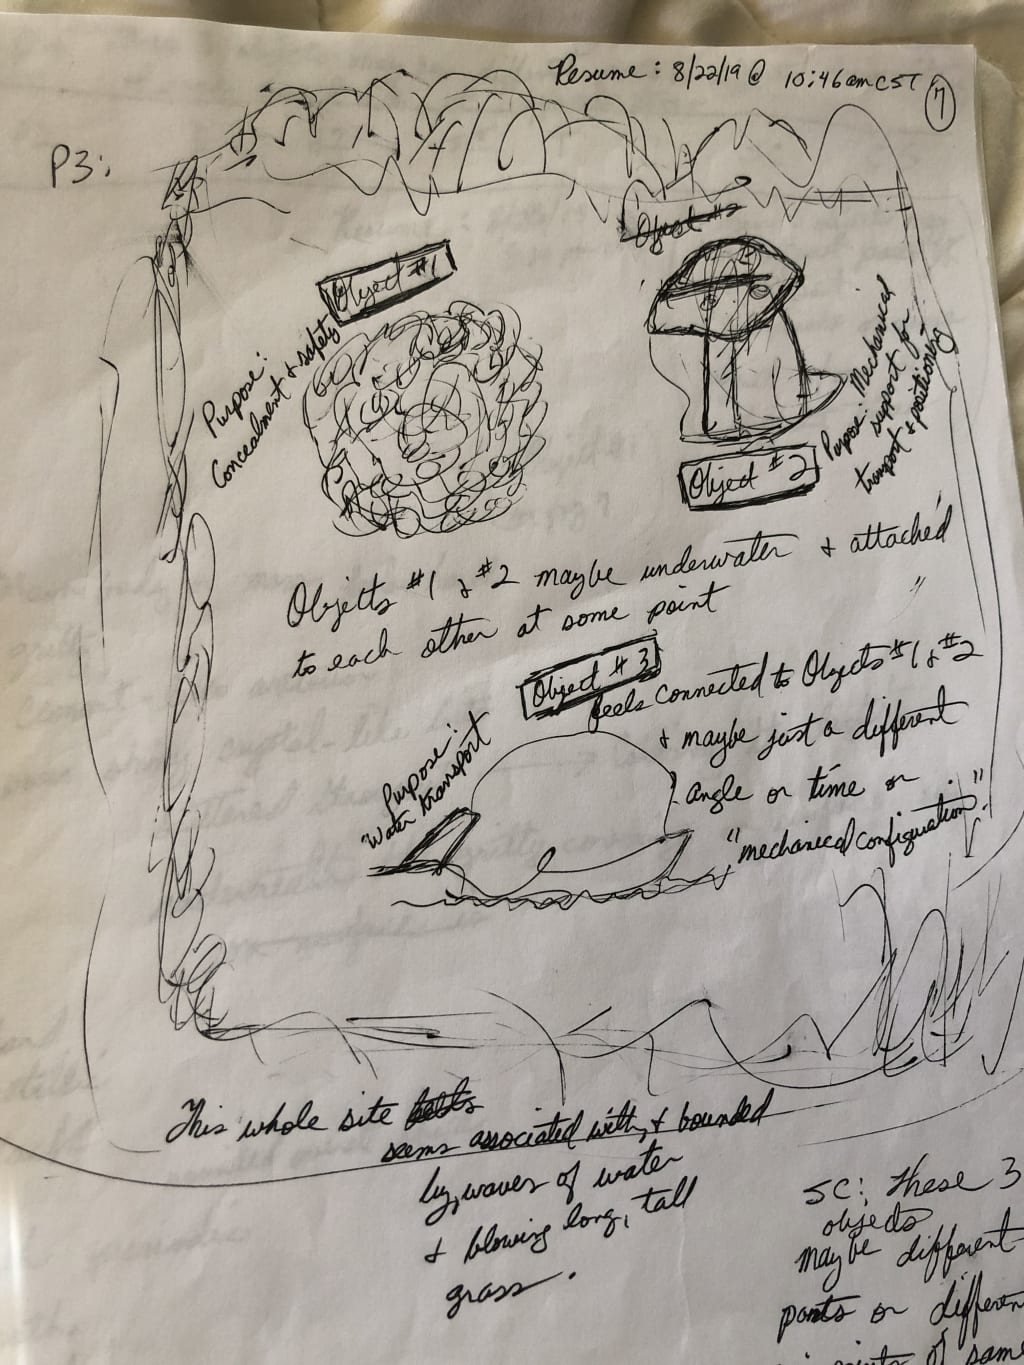 Resume: 8/22/19 @ 10:46am CST
7
P3:
Object #2
Object #1
Purpose:
Concealment & safety
Purpose: Mechanical
support for
transport & positioning
Object #2
Objects #1 & #2 maybe underwater & attached
to each other at some point
Object #3
feels connected to Objects #1 & #2
& maybe just a different
angle or time or
"mechanical configuration."
Purpose:
"Water transport
This whole site
seems associated with, & bounded
by, waves of water
& blowing long, tall
grass.
SC: These 3
objects
maybe different
parts or differen
points of same